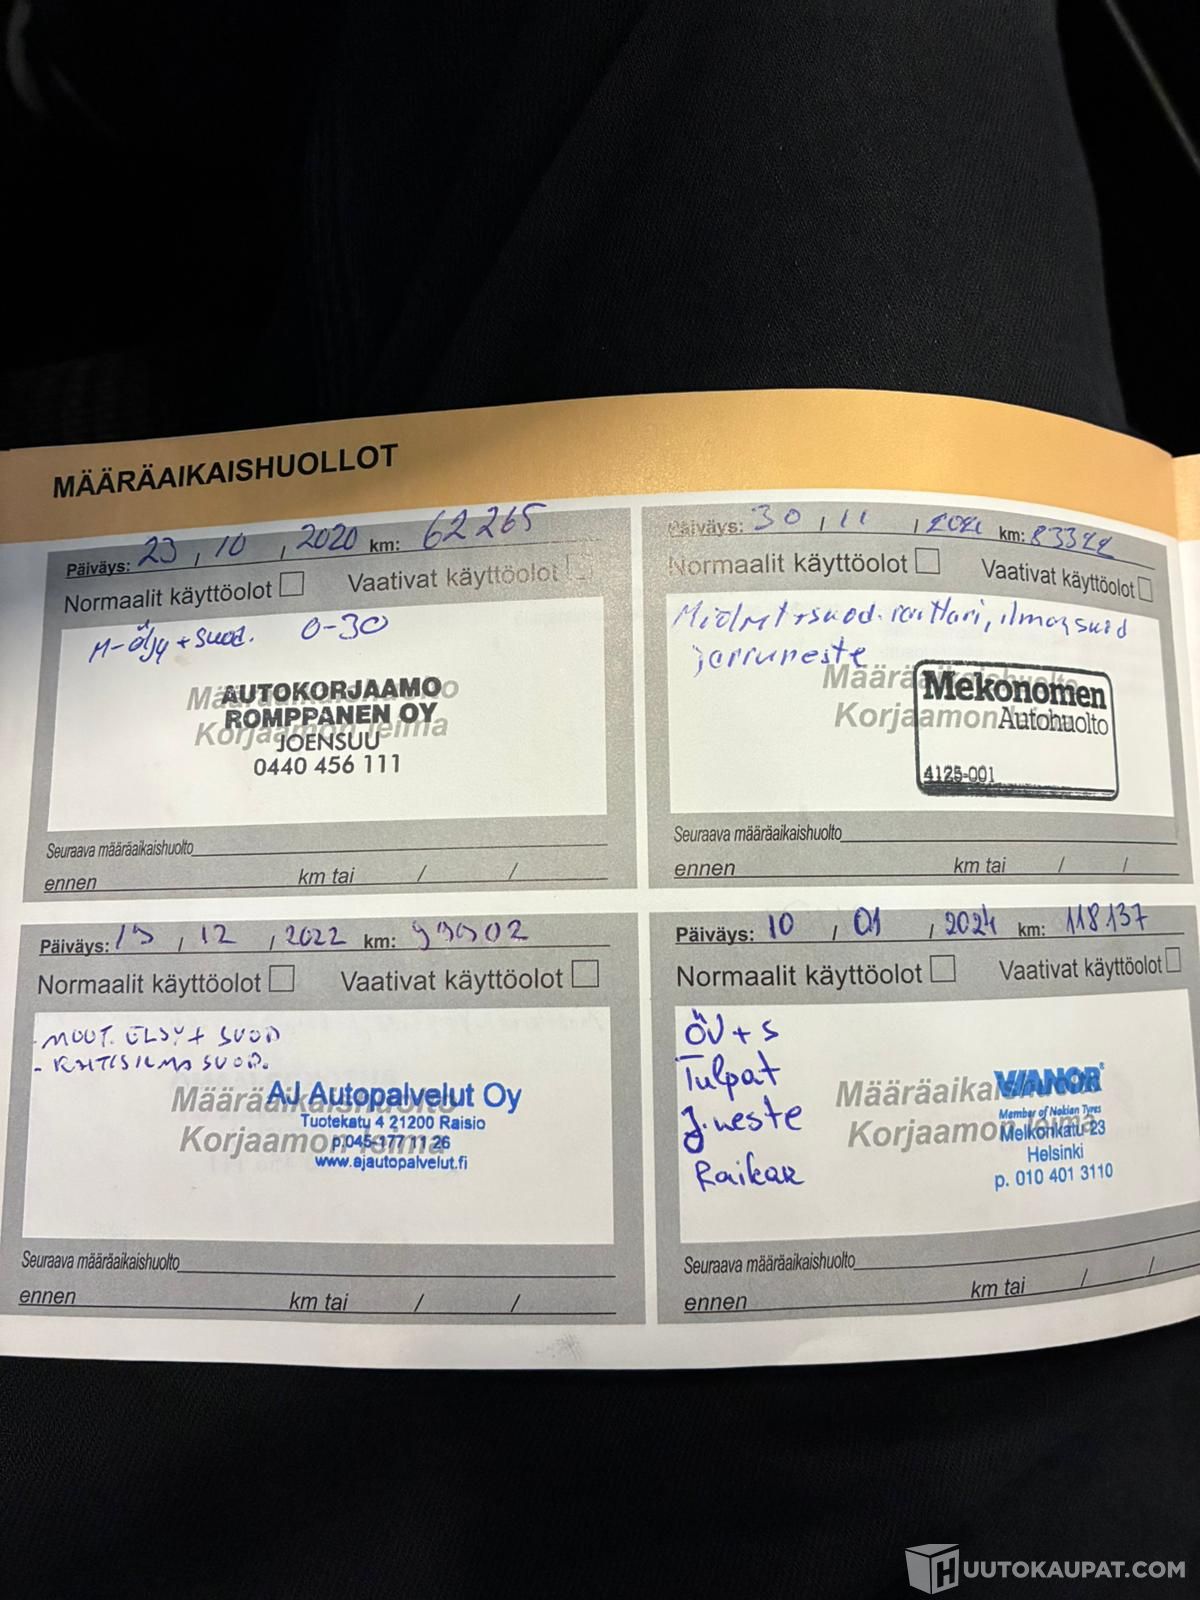 MÄÄRÄAIKAISHUOLLOT
Päiväys: 23 , 10 , 2020 km: 62265
Normaalit käyttöolot Vaativat käyttöolot
M-öljy + suod. 0-30
Määräaikaishuolto
Korjaamon leima
AUTOKORJAAMO
ROMPPANEN OY
JOENSUU
0440 456 111
Seuraava määräaikaishuolto
ennen km tai / /
Päiväys: 30 , 11 , 2021 km: 83322
Normaalit käyttöolot Vaativat käyttöolot
+suod. raittari, ilmansuod
jarruneste
Määräaikaishuolto
Korjaamon
Mekonomen
Autohuolto
4125-001
Seuraava määräaikaishuolto
ennen km tai / /
Päiväys: 19 , 12 , 2022 km: 99902
Normaalit käyttöolot Vaativat käyttöolot
- MOOT. ÖLJY + SUOD
- RAITISILMASUOD.
Määräaikaishuolto
Korjaamon leima
AJ Autopalvelut Oy
Tuotekatu 4 21200 Raisio
p.045-177 11 26
www.ajautopalvelut.fi
Seuraava määräaikaishuolto
ennen km tai / /
Päiväys: 10 , 01 , 2024 km: 118137
Normaalit käyttöolot Vaativat käyttöolot
ÖV + S
Tulpat
J.neste
Raikas
Määräaikaishuolto
Korjaamon leima
VIANOR
Member of Nokian Tyres
Melkonkatu 23
Helsinki
p. 010 401 3110
Seuraava määräaikaishuolto
ennen km tai / /
HUUTOKAUPAT.COM